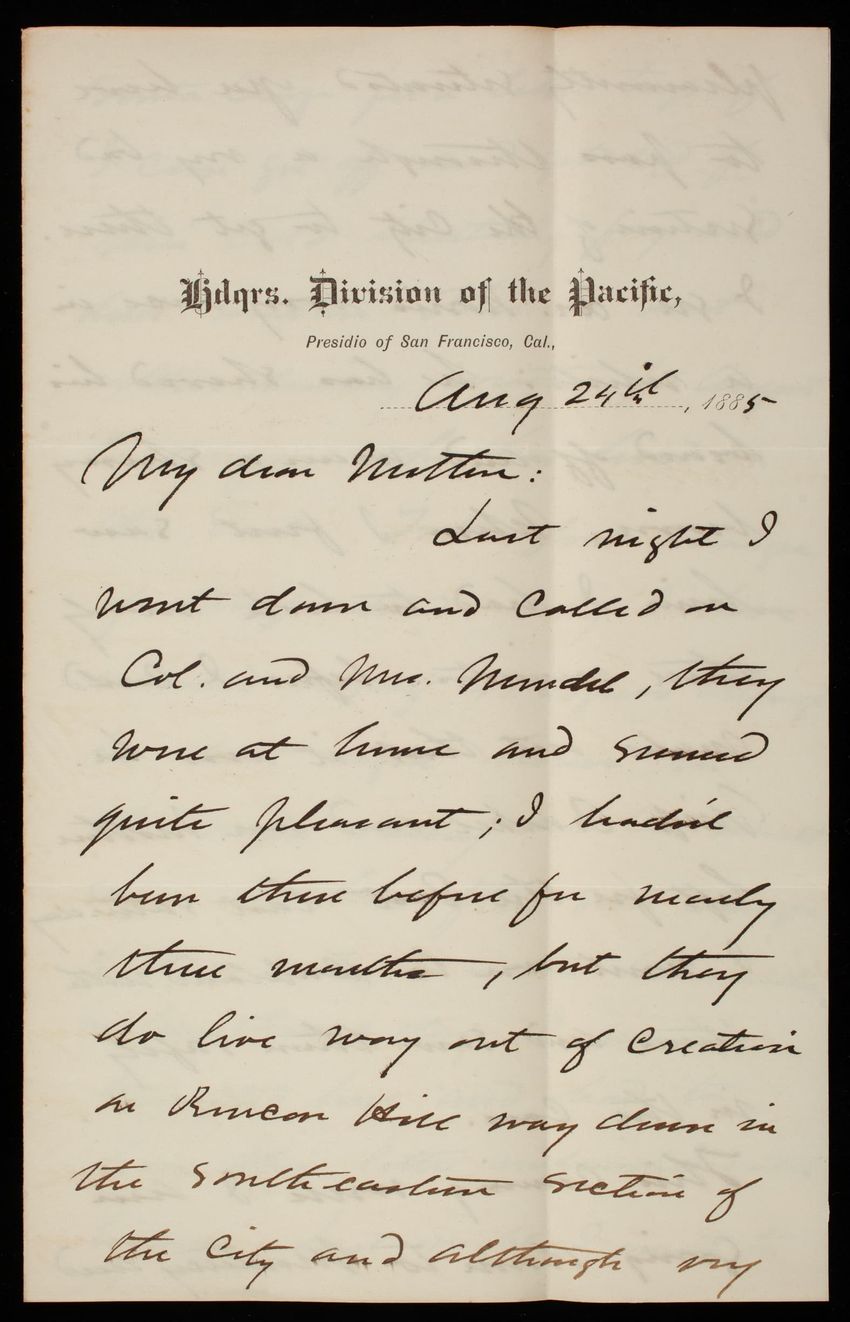 Hdqrs. Division of the Pacific,
Presidio of San Francisco, Cal.,
Aug 24th, 1885
My dear Mother:
Last night I
went down and called on
Col. and Mrs. Mendel, they
were at home and seemed
quite pleasant; I hadn't
been there before for nearly
three months, but they
do live way out of creation
on Rincon Hill way down in
the South-eastern section of
the city and although very